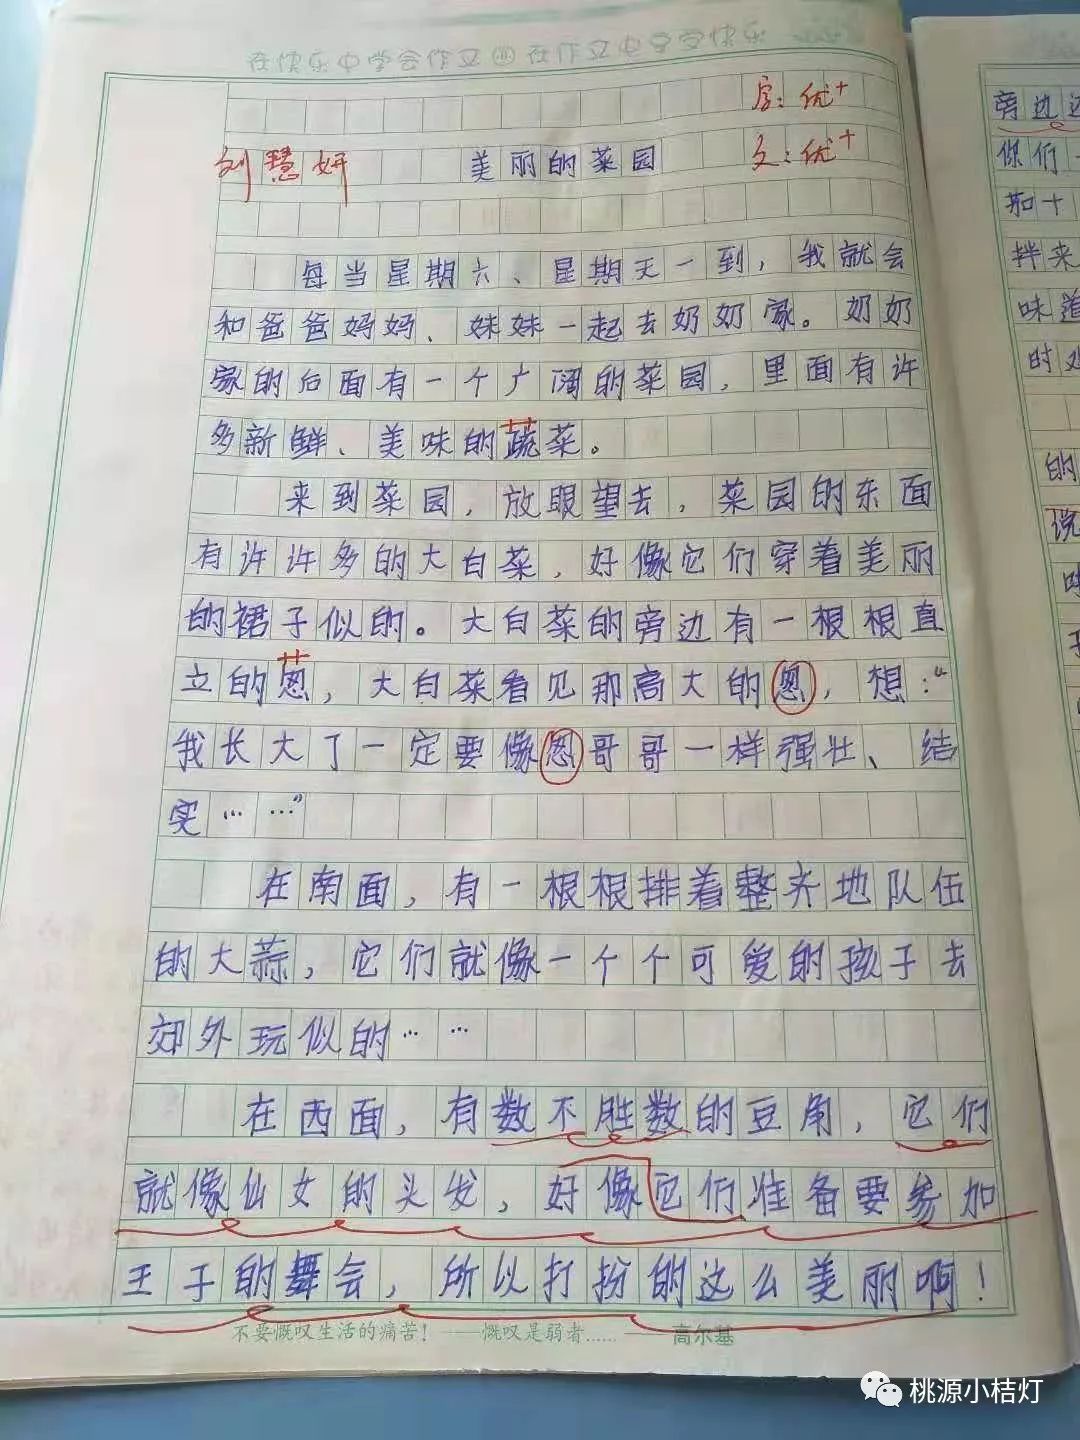 在快乐中学会作文 在作文中享受快乐
字：优+
刘慧妍 美丽的菜园 文：优+
每当星期六、星期天一到，我就会
和爸爸妈妈、妹妹一起去奶奶家。奶奶
家的后面有一个广阔的菜园，里面有许
多新鲜、美味的蔬菜。
来到菜园，放眼望去，菜园的东面
有许许多的大白菜，好像它们穿着美丽
的裙子似的。大白菜的旁边有一根根直
立的葱，大白菜看见那高大的葱，想：“
我长大了一定要像葱哥哥一样强壮、结
实……”
在南面，有一根根排着整齐地队伍
的大蒜，它们就像一个个可爱的孩子去
郊外玩似的……
在西面，有数不胜数的豆角，它们
就像仙女的头发，好像它们准备要参加
王子的舞会，所以打扮的这么美丽啊！
不要慨叹生活的痛苦！——慨叹是弱者…… ——高尔基
旁边
你们
茄十
拌来
味道
时
的
说
桃源小桔灯